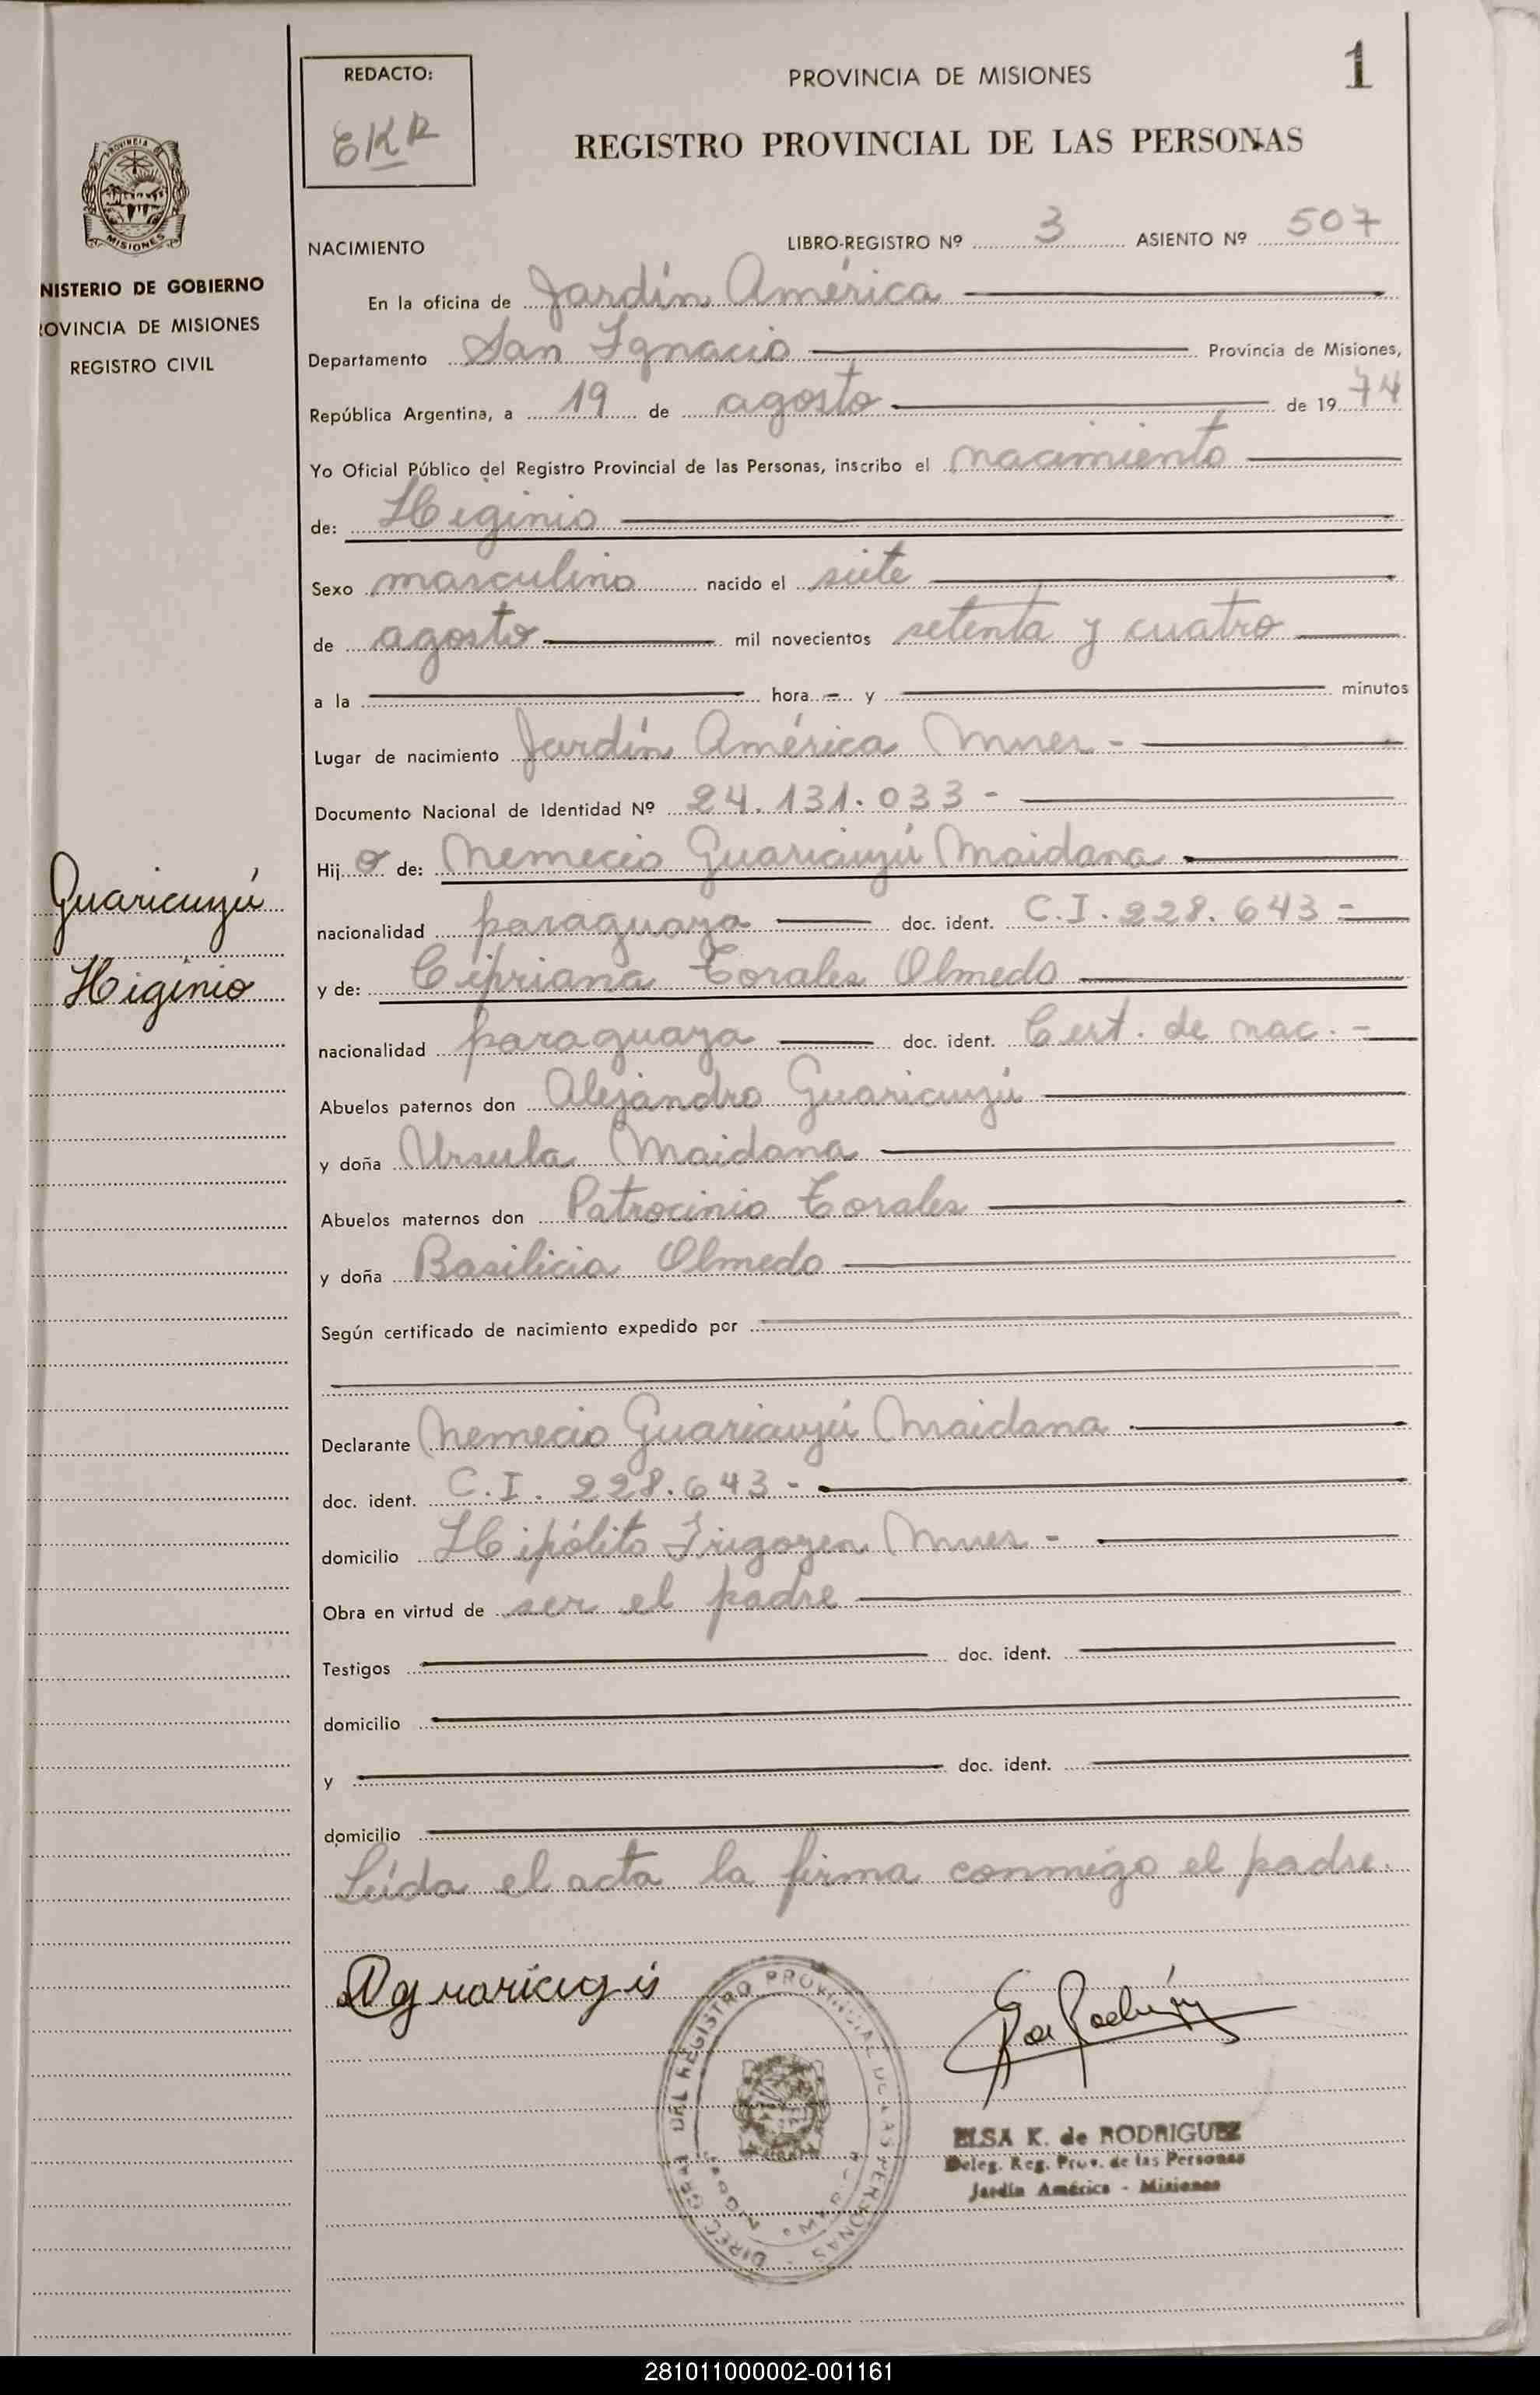 REDACTO:
EKR
PROVINCIA DE MISIONES
1
REGISTRO PROVINCIAL DE LAS PERSONAS
MISIONES
NISTERIO DE GOBIERNO
OVINCIA DE MISIONES
REGISTRO CIVIL
NACIMIENTO
LIBRO-REGISTRO Nº 3 ASIENTO Nº 507
En la oficina de Jardín América
Departamento San Ignacio Provincia de Misiones,
República Argentina, a 19 de agosto de 1974
Yo Oficial Público del Registro Provincial de las Personas, inscribo el nacimiento
de: Higinio
Sexo masculino nacido el siete
de agosto mil novecientos setenta y cuatro
a la hora y minutos
Lugar de nacimiento Jardín América Mnes -
Documento Nacional de Identidad Nº 24.131.033 -
Hijo de: Nemecio Guaricuyú Maidana
Guaricuyú
nacionalidad paraguaya doc. ident. C.I. 228.643 -
Higinio
y de: Cipriana Torales Olmedo
nacionalidad paraguaya doc. ident. Cert. de nac. -
Abuelos paternos don Alejandro Guaricuyú
y doña Ursula Maidana
Abuelos maternos don Patrocinio Torales
y doña Basilicia Olmedo
Según certificado de nacimiento expedido por
Declarante Nemecio Guaricuyú Maidana
doc. ident. C.I. 228.643 -
domicilio Hipólito Irigoyen Mnes -
Obra en virtud de ser el padre
Testigos doc. ident.
domicilio
y doc. ident.
domicilio
Leída el acta la firma conmigo el padre.
DIREC. GRAL. DEL REGISTRO PROVINCIAL DE LAS PERSONAS
ELSA K. de RODRIGUEZ
Deleg. Reg. Prov. de las Personas
Jardín América - Misiones
281011000002-001161